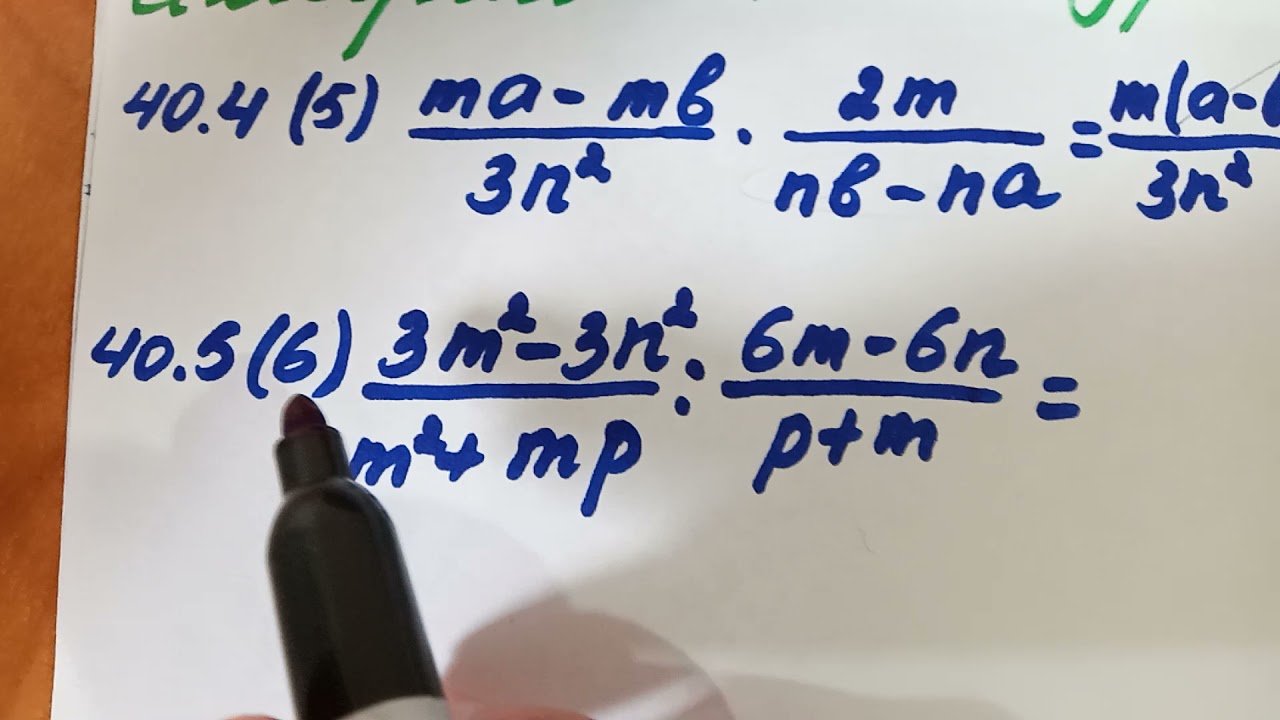 40.4 (5) \frac{ma - mb}{3n^2} \cdot \frac{2m}{nb - na} = \frac{m(a-b}{3n^2}
40.5 (6) \frac{3m^2 - 3n^2}{m^2 + mp} : \frac{6m - 6n}{p + m} =